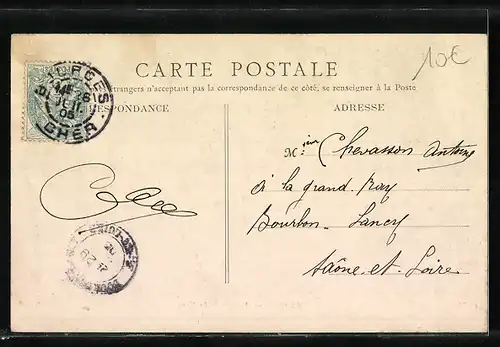 10€
CARTE POSTALE
étrangers n'acceptant pas la correspondance de ce côté, se renseigner à la Poste
RESPONDANCE
ADRESSE
CHER
05
Chevasson Antoine
à la grand
Bourbon-Lancy
Saône-et-Loire